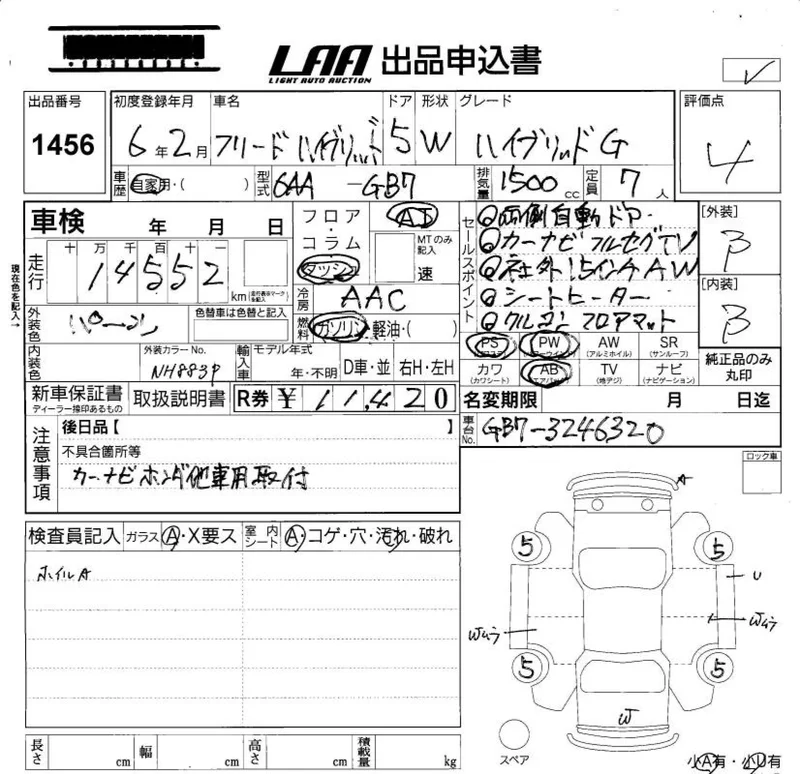 LAA 出品申込書
LIGHT AUTO AUCTION
出品番号 初度登録年月 車名 ドア 形状 グレード 評価点
1456 6年2月 フリードハイブリッド 5 W ハイブリッドG 4
車歴 自家用・( ) 型式 6AA -GB7 排気量 1500cc 定員 7人
車検 年 月 日 フロア・コラム・ダッシュ AT セールスポイント 両側自動ドア [外装]
走行 十万千百十一 MTのみ記入 カーナビ フルセグTV B
14552 km(走行表示マークを記入) 速 社外15インチAW
現在色を記入→ 冷房 AAC シートヒーター [内装]
外装色 パープル 色替車は色替と記入 燃料 ガソリン・軽油・( ) クルコン フロアマット B
内装色 外装カラーNo. NH883P 輸入車 モデル年式 年・不明 D車・並 右H・左H
PS (パワステ) PW (パワーウインド) AW (アルミホイル) SR (サンルーフ) 純正品のみ丸印
カワ (カワシート) AB (エアバック) TV (地デジ) ナビ (ナビゲーション)
新車保証書 ディーラー捺印あるもの 取扱説明書 R券 ¥11,420 名変期限 月 日迄
注意事項 後日品【 】 車台No. GB7-3246320
不具合箇所等 ロック車
カーナビホンダ他車用取付
検査員記入 ガラス A・X要ス 室内シート A・コゲ・穴・汚れ・破れ
ホイルA
A
5 5
U
Wムラ Wムラ
5 5
W
スペア
長さ cm 幅 cm 高さ cm 積載量 kg 小A有・小U有